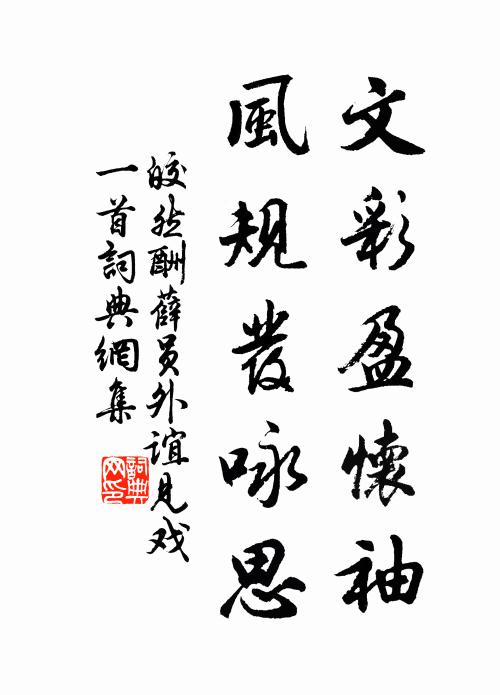 文彩盈懷袖
風規發咏思
皎然酬薛員外誼見戏
一首詞典網集
詞典
网印